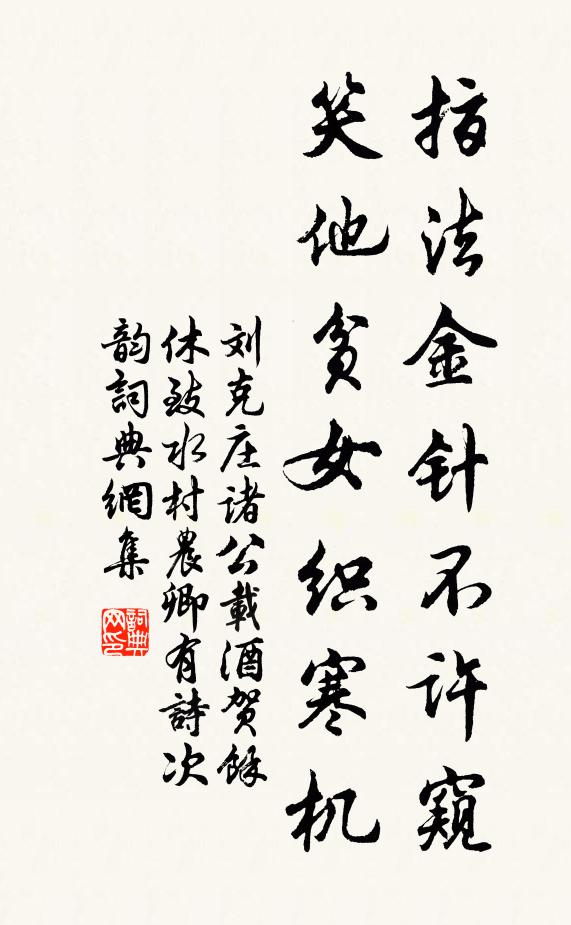 指法金针不许窥
笑他贫女织寒机
刘克庄诸公載酒贺餘
休致水村農卿有詩次
韵詞典網集
詞典网印